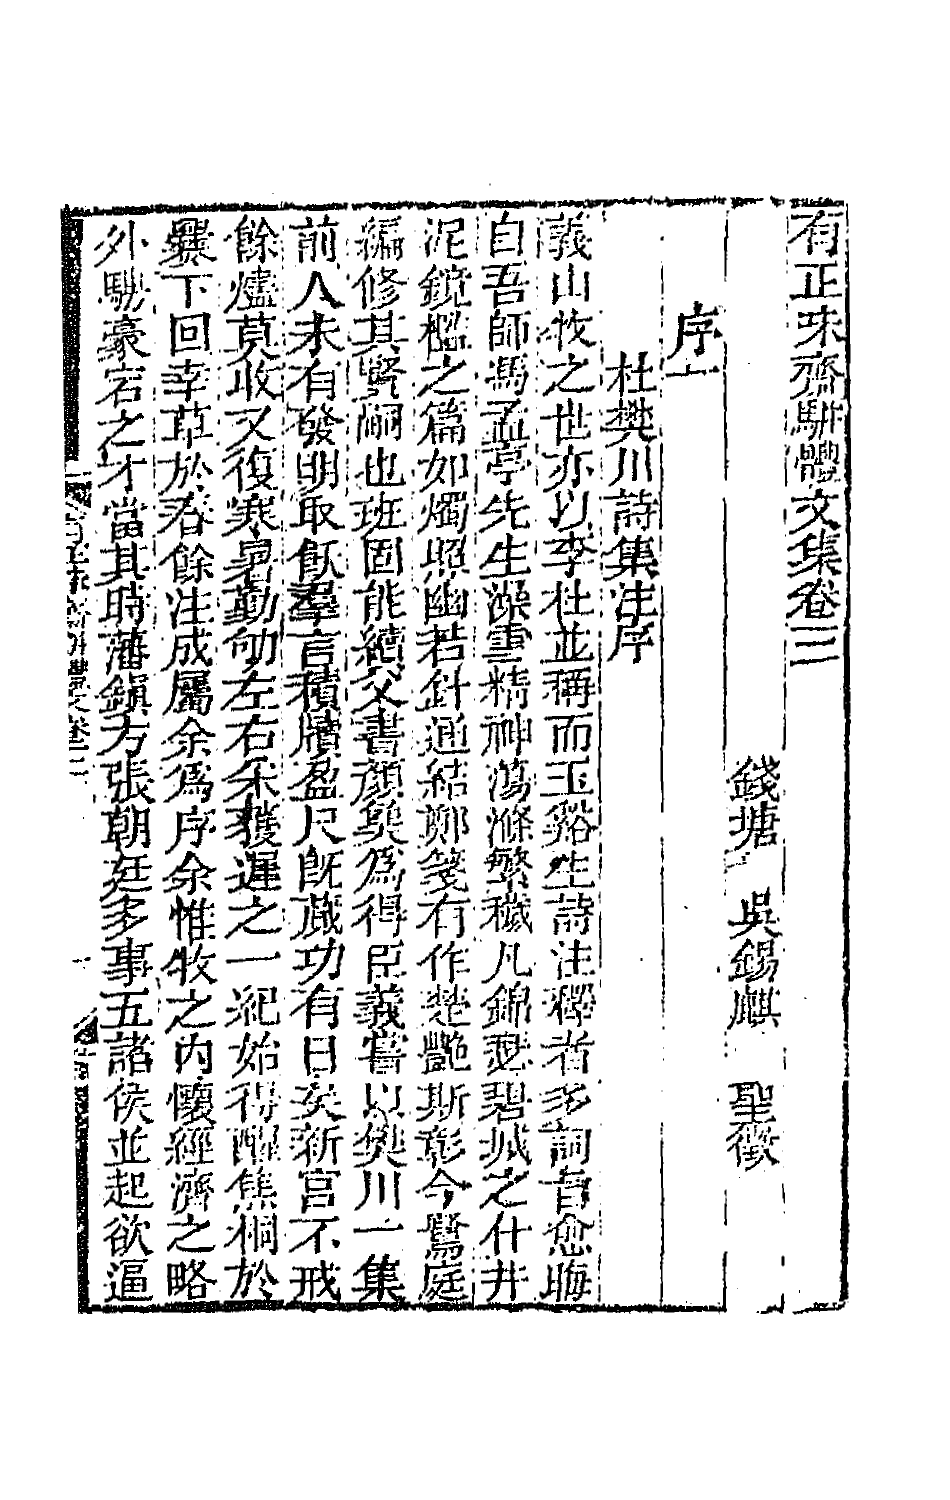 有正味齋駢體文集卷三
錢塘 吳錫麒 聖徵
序一
杜樊川詩集注序
義山牧之世亦以李杜並稱而玉谿生詩注釋者多詞旨愈晦
自吾師馮孟亭先生澡雪精神蕩滌繁穢凡錦瑟碧城之什井
泥鏡檻之篇如燭照幽若針通結鄭箋有作楚豔斯彰今鷺庭
編修其賢嗣也班固能續父書顏奐爲得臣義嘗以樊川一集
前人未有發明取飫羣言積牘盈尺旣蕆功有日矣新宫不戒
餘燼莫收又復寒暑勤劬左右采獲遲之一紀始得醒焦桐於
爨下回幸草於春餘注成屬余爲序余惟牧之内懷經濟之略
外騁豪宕之才當其時藩鎭方張朝廷多事五諸侯並起欲逼
有正味齋駢體文卷三
一